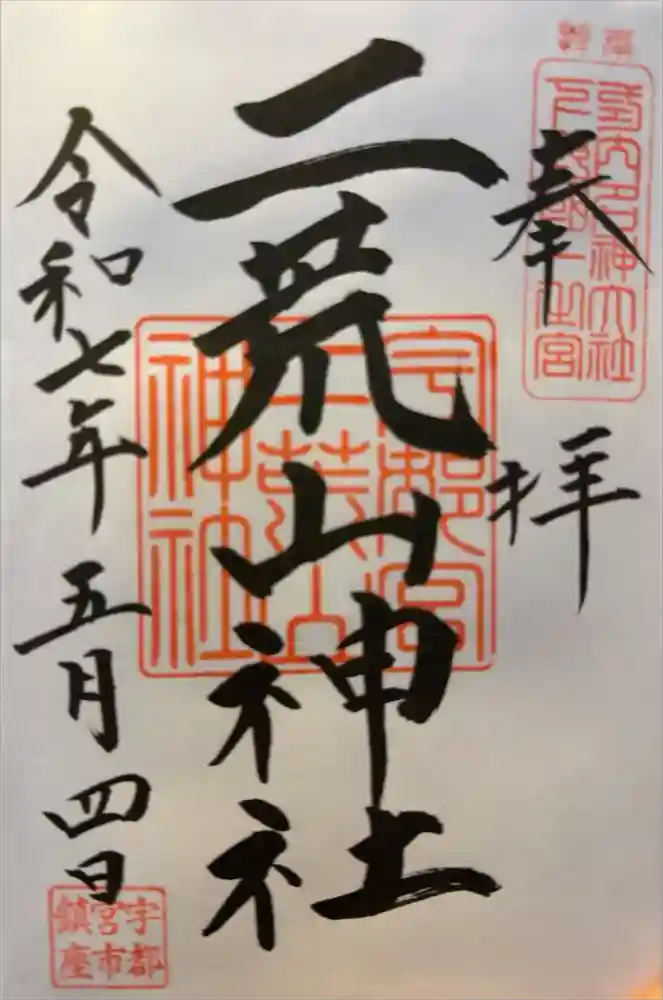 奉拝
式内名神大社
下野國一之宮
二荒山神社
宇都宮
二荒山
神社
令和七年五月四日
宇都
宮市
鎮座